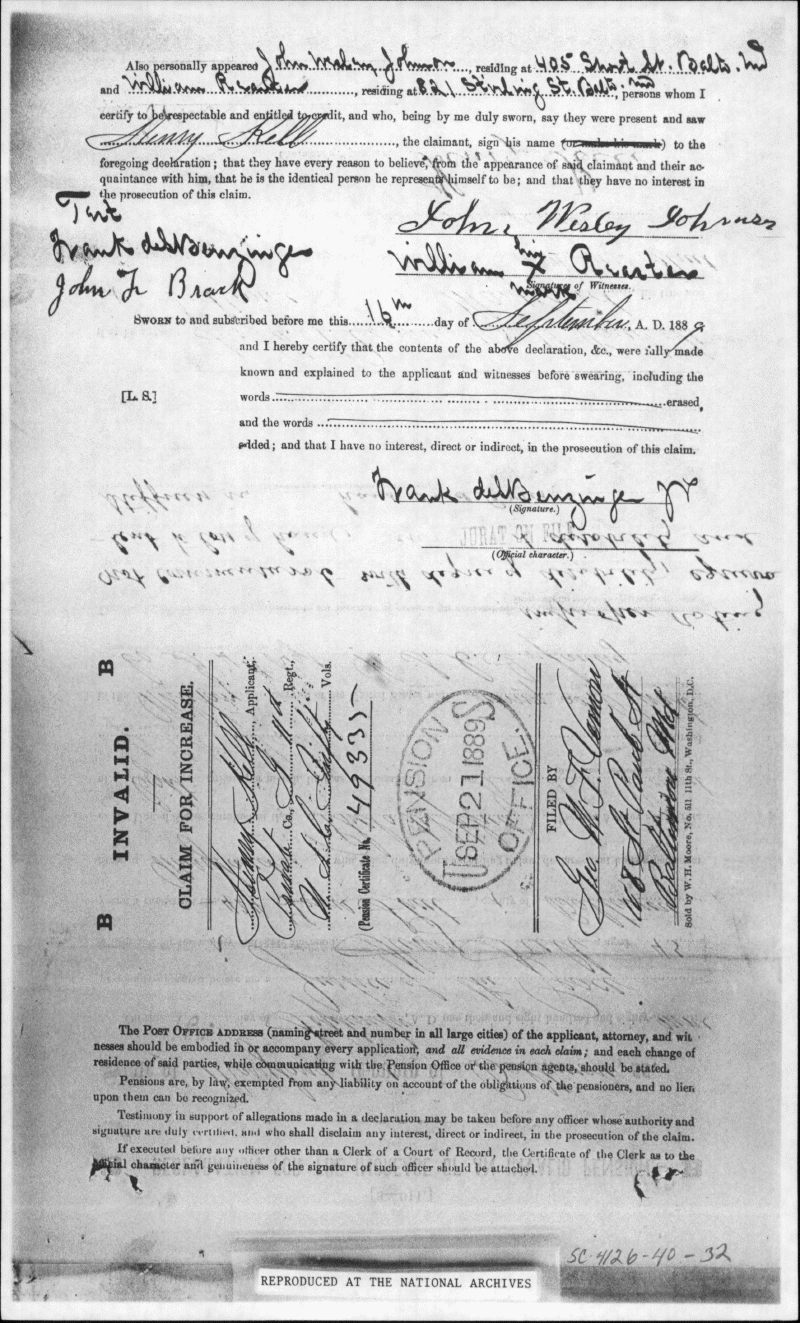 Also personally appeared John Wesley Johnson, residing at 405 Short St. Balto. Md
and William, residing at 821 Stirling St. Balto. Md, persons whom I
certify to be respectable and entitled to credit, and who, being by me duly sworn, say they were present and saw
Henry Kell, the claimant, sign his name (or make his mark) to the
foregoing declaration; that they have every reason to believe, from the appearance of said claimant and their ac-
quaintance with him, that he is the identical person he represents himself to be; and that they have no interest in
the prosecution of this claim.
Test
John Wesley Johnson
Frank deSBenzinger
William his X
John F Brack
Signatures of Witnesses.
mark
SWORN to and subscribed before me this 16th day of September, A. D. 1889
and I hereby certify that the contents of the above declaration, &c., were fully made
known and explained to the applicant and witnesses before swearing, including the
[L. S.]
words erased,
and the words
added; and that I have no interest, direct or indirect, in the prosecution of this claim.
Frank deSBenzinger Jr
(Signature.)
(Official character.)
B INVALID. B
CLAIM FOR INCREASE.
Henry Kell Applicant,
Co., Regt.,
U.S.C. Vols.
(Pension Certificate No. 49335
U.S. PENSION OFFICE.
SEP 21 1889
FILED BY
Geo. W. F. Vernon
No 8 St Paul St
Baltimore Md
Sold by W. H. Moore, No. 511 11th St., Washington, D.C.
The POST OFFICE ADDRESS (naming street and number in all large cities) of the applicant, attorney, and wit
nesses should be embodied in or accompany every application, and all evidence in each claim; and each change of
residence of said parties, while communicating with the Pension Office or the pension agents, should be stated.
Pensions are, by law, exempted from any liability on account of the obligations of the pensioners, and no lien
upon them can be recognized.
Testimony in support of allegations made in a declaration may be taken before any officer whose authority and
signature are duly certified, and who shall disclaim any interest, direct or indirect, in the prosecution of the claim.
If executed before any officer other than a Clerk of a Court of Record, the Certificate of the Clerk as to the
official character and genuineness of the signature of such officer should be attached.
SC-4126-40-32
REPRODUCED AT THE NATIONAL ARCHIVES